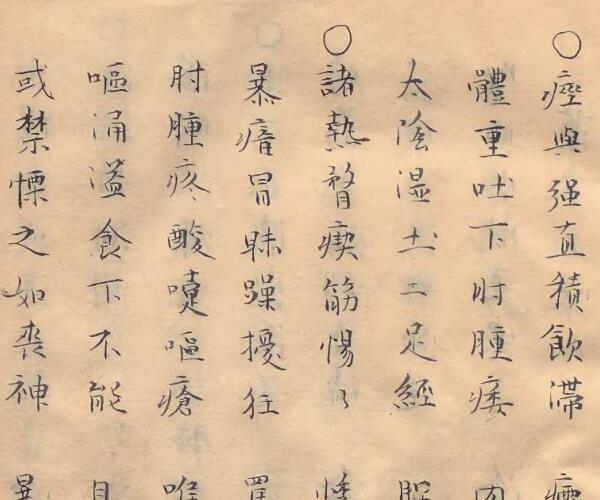 ○痙與强直積飲滯
體重吐下肘腫痿
太陰湿土二足經
○諸熱瞀瘈筋惕
暴瘖冒昧躁擾狂
肘腫疼酸嚏嘔瘡
嘔涌溢食下不能
或禁慄之如丧神